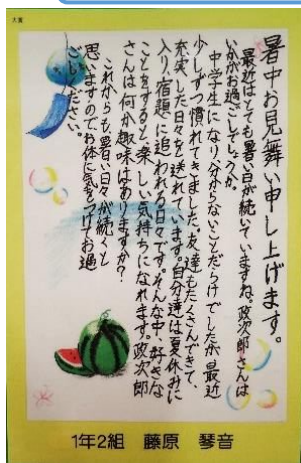 大賞
暑中お見舞い申し上げます。
最近はとても暑い日が続いていますね。政次郎さんは
いかがお過ごしでしょうか。
中学生になり分からないことだらけでしたが、最近
少しずつ慣れてきました。友達もたくさんできて、
充実した日々を送れています。自分達は夏休みに
入り、宿題に追われる日々です。そんな中、好きな
ことをすると楽しい気持ちになれます。政次郎
さんは何か趣味はありますか？
これからも暑い日々が続くと
思いますので、お体に気をつけてお過
ごしください。
1年2組 藤原 琴音